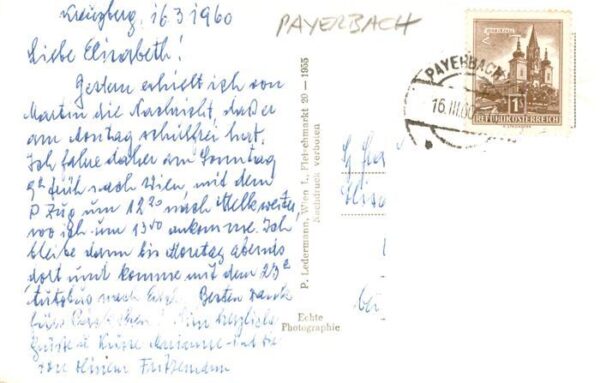 Kreuzberg, 16.3.1960
PAYERBACH
Liebe Elisabeth!
Gestern erhielt ich von
Martin die Nachricht, daß er
am Montag schulfrei hat.
Ich fahre daher am Sonntag
9h früh nach Wien, mit dem
P Zug um 12 20 nach Melk weiter,
wo ich um 13 50 ankomme. Ich
bleibe dann bis Montag abends
dort und komme mit dem
Autobus nach Besten Dank
fürs Herzliche
Grüße u. Küsse
Fritzemann
P. Ledermann, Wien I., Fleischmarkt 20 — 1955
Nachdruck verboten
Echte
Photographie
PAYERBACH
16.III.60
1S
REPUBLIK ÖSTERREICH